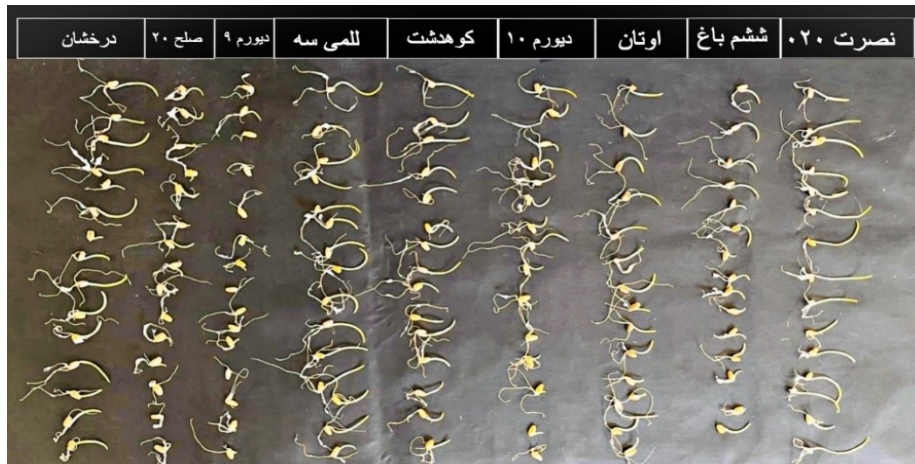 نصرت ۰۲۰ ششم باغ اوتان دیورم ۱۰ کوهدشت للمی سه دیورم ۹ صلح ۲۰ درخشان